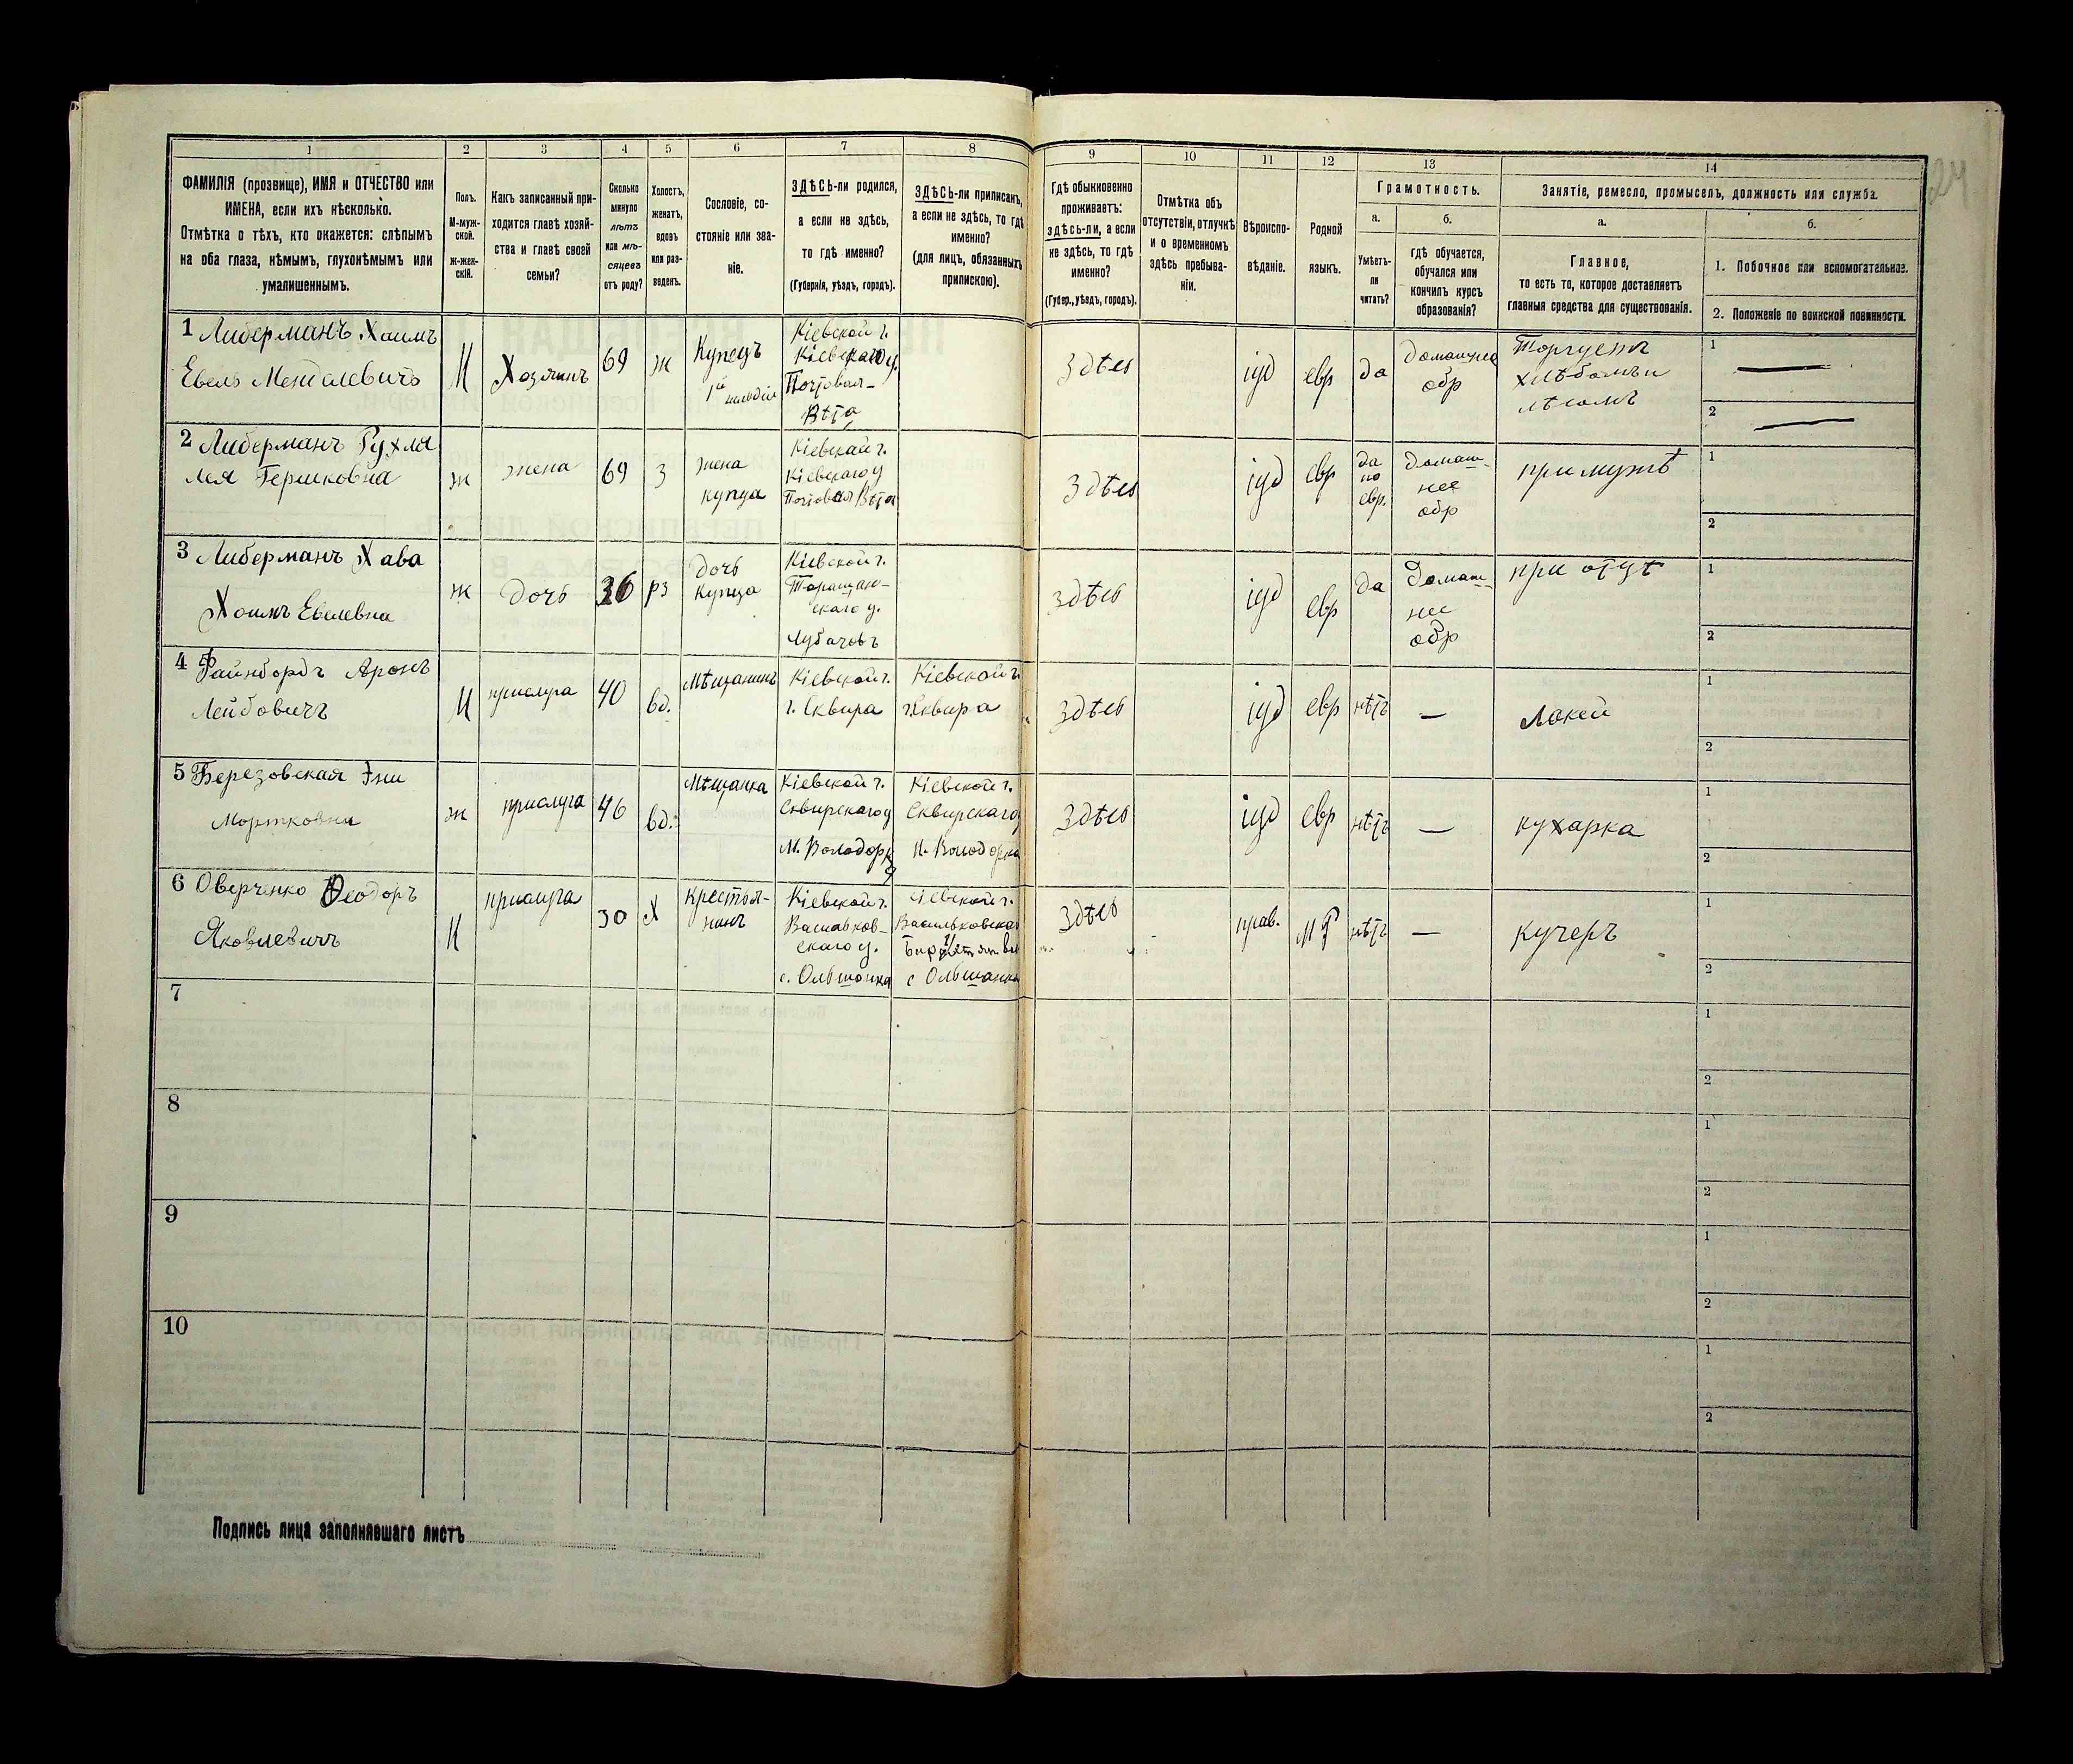 24
1 2 3 4 5 6 7 8 9 10 11 12 13 14
ФАМИЛІЯ (прозвище), ИМЯ и ОТЧЕСТВО или
ИМЕНА, если ихъ нѣсколько.
Отмѣтка о тѣхъ, кто окажется: слѣпымъ
на оба глаза, нѣмымъ, глухонѣмымъ или
умалишеннымъ.
Полъ.
М-муж-
ской.
ж-жен-
скій.
Какъ записанный при-
ходится главѣ хозяй-
ства и главѣ своей
семьи?
Сколько
минуло
лѣтъ
или мѣ-
сяцевъ
отъ роду?
Холостъ,
женатъ,
вдовъ
или раз-
веденъ.
Сословіе, со-
стояніе или зва-
ніе.
ЗДѢСЬ-ли родился,
а если не здѣсь,
то гдѣ именно?
(Губернія, уѣздъ, городъ).
ЗДѢСЬ-ли приписанъ,
а если не здѣсь, то гдѣ
именно?
(для лицъ, обязанныхъ
припискою).
Гдѣ обыкновенно
проживаетъ:
здѣсь-ли, а если
не здѣсь, то гдѣ
именно?
(Губер., уѣздъ, городъ).
Отмѣтка объ
отсутствіи, отлучкѣ
и о временномъ
здѣсь пребыва-
ніи.
Вѣроиспо-
вѣданіе.
Родной
языкъ.
Грамотность.
а.
Умѣетъ-
ли
читать?
б.
гдѣ обучается,
обучался или
кончилъ курсъ
образованія?
Занятіе, ремесло, промыселъ, должность или служба.
а.
Главное,
то есть то, которое доставляетъ
главныя средства для существованія.
б.
1. Побочное или вспомогательное.
2. Положеніе по воинской повинности.
1 Либерманъ Хаимъ
Евель Менделевичъ
М
Хозяинъ
69
ж
Купецъ
1й гильдіи
Кіевской г.
Кіевскаго у.
Почтовая-
Вѣта
Здѣсь
іуд
евр
да
домашнее
обр
Торгуетъ
хлѣбомъ и
лѣсомъ
1
2
2 Либерманъ Рухля
Лея Гершковна
ж
жена
69
З
жена
купца
Кіевской г.
Кіевскаго у
Почтовая Вѣта
Здѣсь
іуд
евр
да
по
евр.
домаш-
нее
обр
при мужѣ
1
2
3 Либерманъ Хава
Хаимъ Евелевна
ж
дочь
36
рз
дочь
купца
Кіевской г.
Таращан-
скаго у.
Здѣсь
іуд
евр
да
домаш-
нее
обр
при отцѣ
1
2
4 Файнбордъ Аронъ
Лейбовичъ
М
прислуга
40
вд.
Мѣщанинъ
Кіевской г.
г. Сквира
Кіевской г.
г. Сквира
Здѣсь
іуд
евр
нѣтъ
—
лакей
1
2
5 Березовская Эни
Мортковна
ж
прислуга
46
вд.
Мѣщанка
Кіевской г.
Сквирскаго у
М. Володарка
Кіевской г.
Сквирскаго у
м. Володарка
Здѣсь
іуд
евр
нѣтъ
—
кухарка
1
2
6 Оверченко Ѳеодоръ
Яковлевичъ
М
прислуга
30
Х
Крестья-
нинъ
Кіевской г.
Васильков-
скаго у.
с. Ольшанка
Кіевской г.
Васильковскаго
с Ольшанка
Здѣсь
прав.
М Р
нѣтъ
—
кучеръ
1
2
7
1
2
8
1
2
9
1
2
10
1
2
Подпись лица заполнявшаго листъ